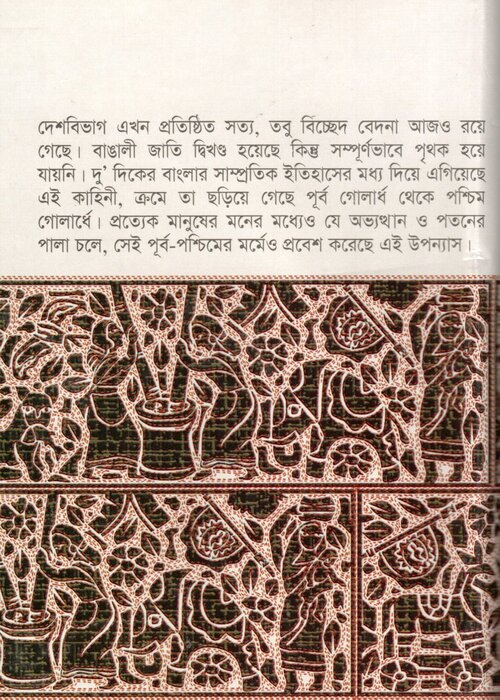 দেশবিভাগ এখন প্রতিষ্ঠিত সত্য, তবু বিচ্ছেদ বেদনা আজও রয়ে
গেছে। বাঙালী জাতি দ্বিখণ্ড হয়েছে কিন্তু সম্পূর্ণভাবে পৃথক হয়ে
যায়নি। দু’ দিকের বাংলার সাম্প্রতিক ইতিহাসের মধ্য দিয়ে এগিয়েছে
এই কাহিনী, ক্রমে তা ছড়িয়ে গেছে পূর্ব গোলার্ধ থেকে পশ্চিম
গোলার্ধে। প্রত্যেক মানুষের মনের মধ্যেও যে অভ্যুত্থান ও পতনের
পালা চলে, সেই পূর্ব-পশ্চিমের মর্মেও প্রবেশ করেছে এই উপন্যাস।